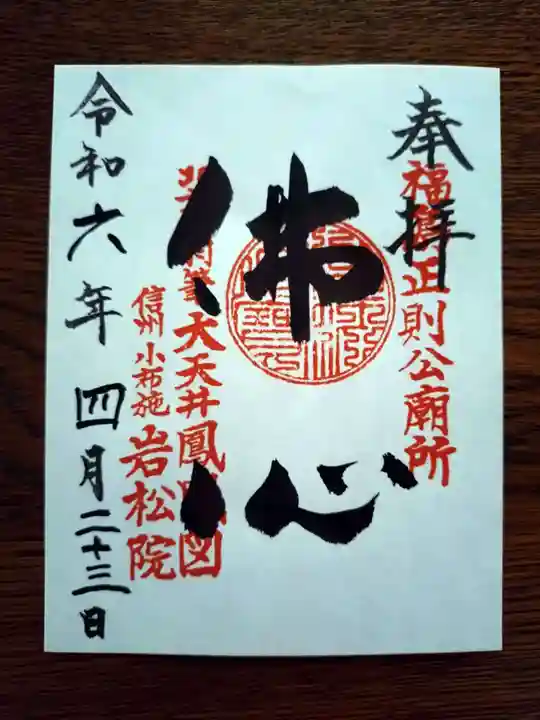 奉拝
福島正則公廟所
佛心
北斎肉筆大天井鳳凰図
信州小布施
岩松院
令和六年四月二十三日